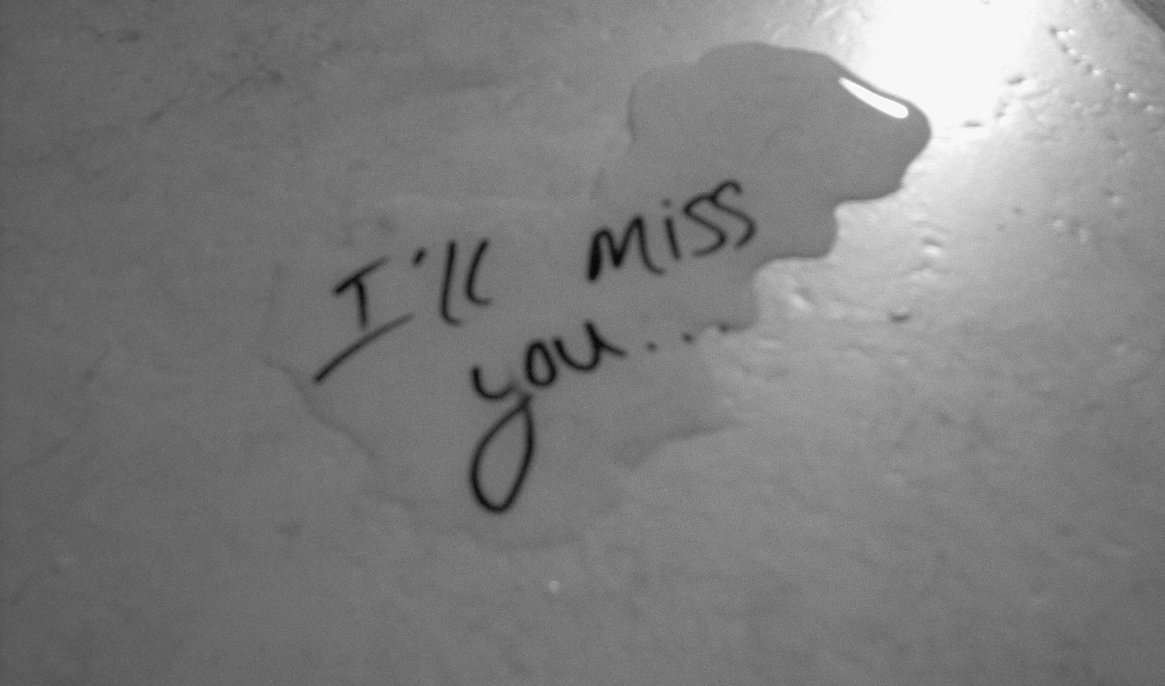 I'll miss
you...